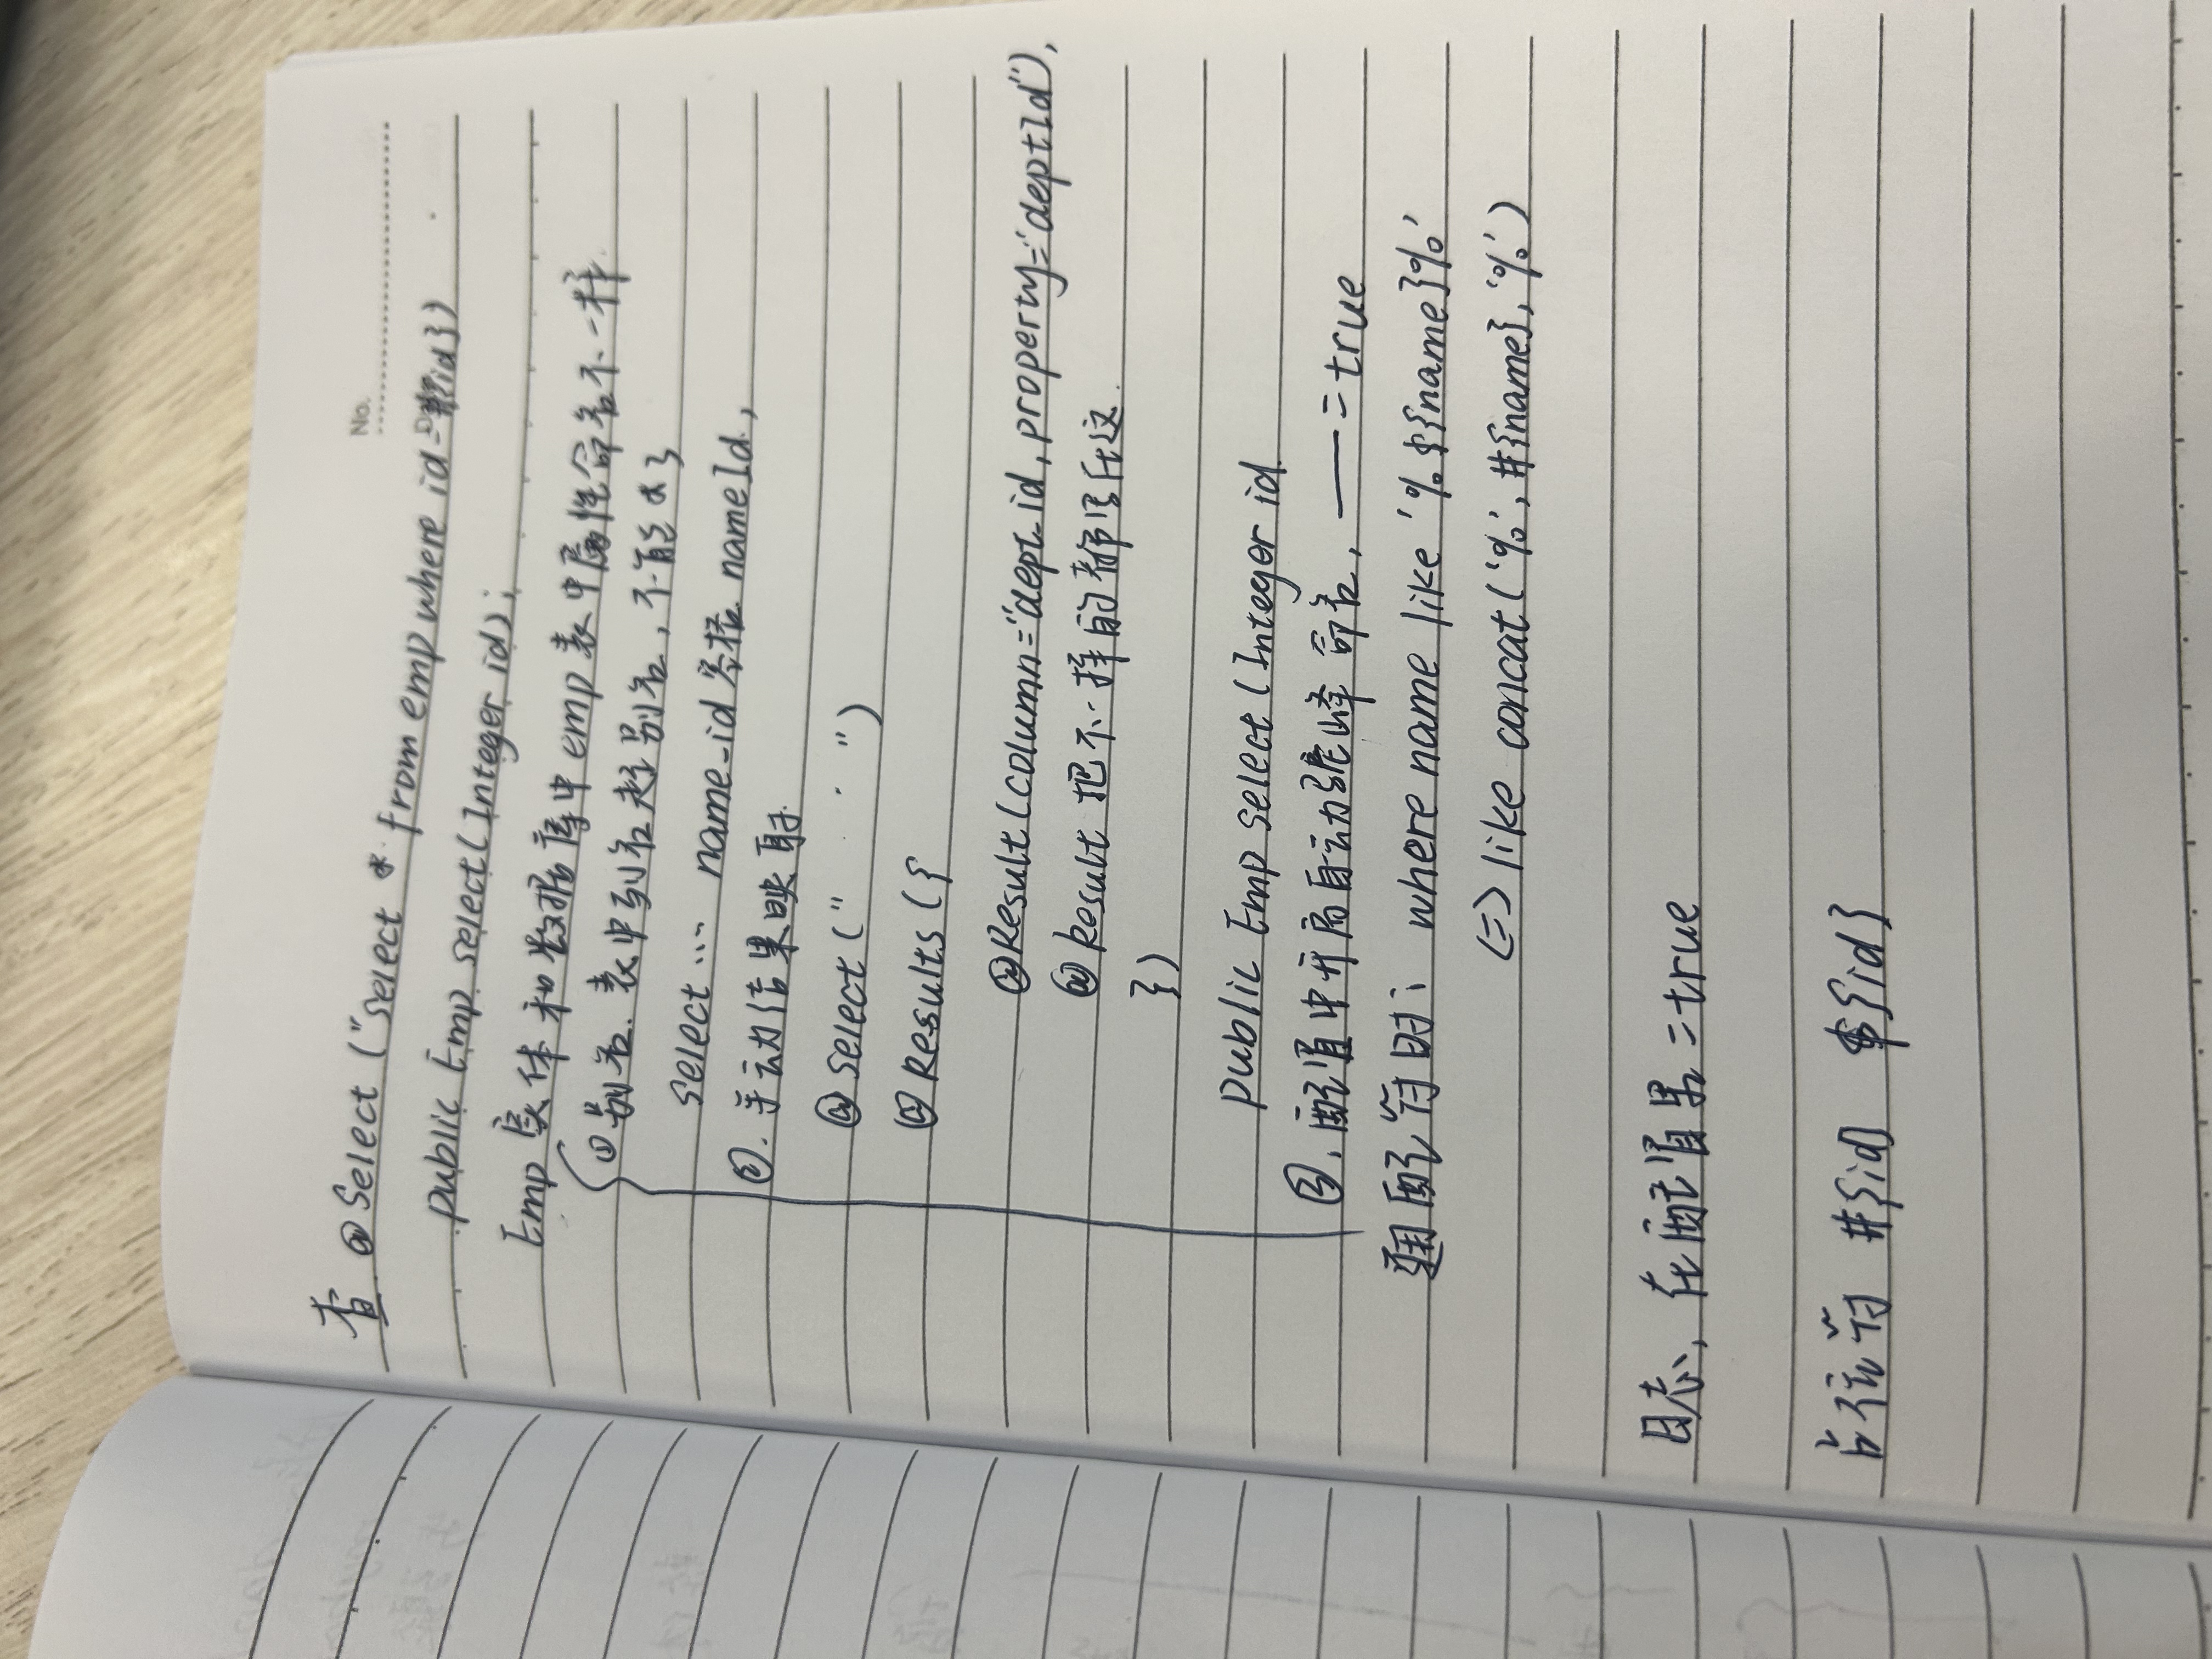 No.
查 @Select ("select * from emp where id = #{id})
public Emp select(Integer id);
Emp 实体和数据库中emp表中属性命名不一样.
①别名. 表中列名起别名, 不能 * 了
select ... name_id 空格 nameId,
②. 手动结果映射.
@Select(" ")
@Results({
@Result(column="dept_id, property="deptId"),
@Result 把不一样的都写在这.
})
public Emp select(Integer id
③. 配置中开启自动驼峰命名, —— = true
通配符时: where name like '%${name}%'
<=> like concat('%', #{name}, '%')
日志, 在配置里 = true
占位符 #{id} ${id}